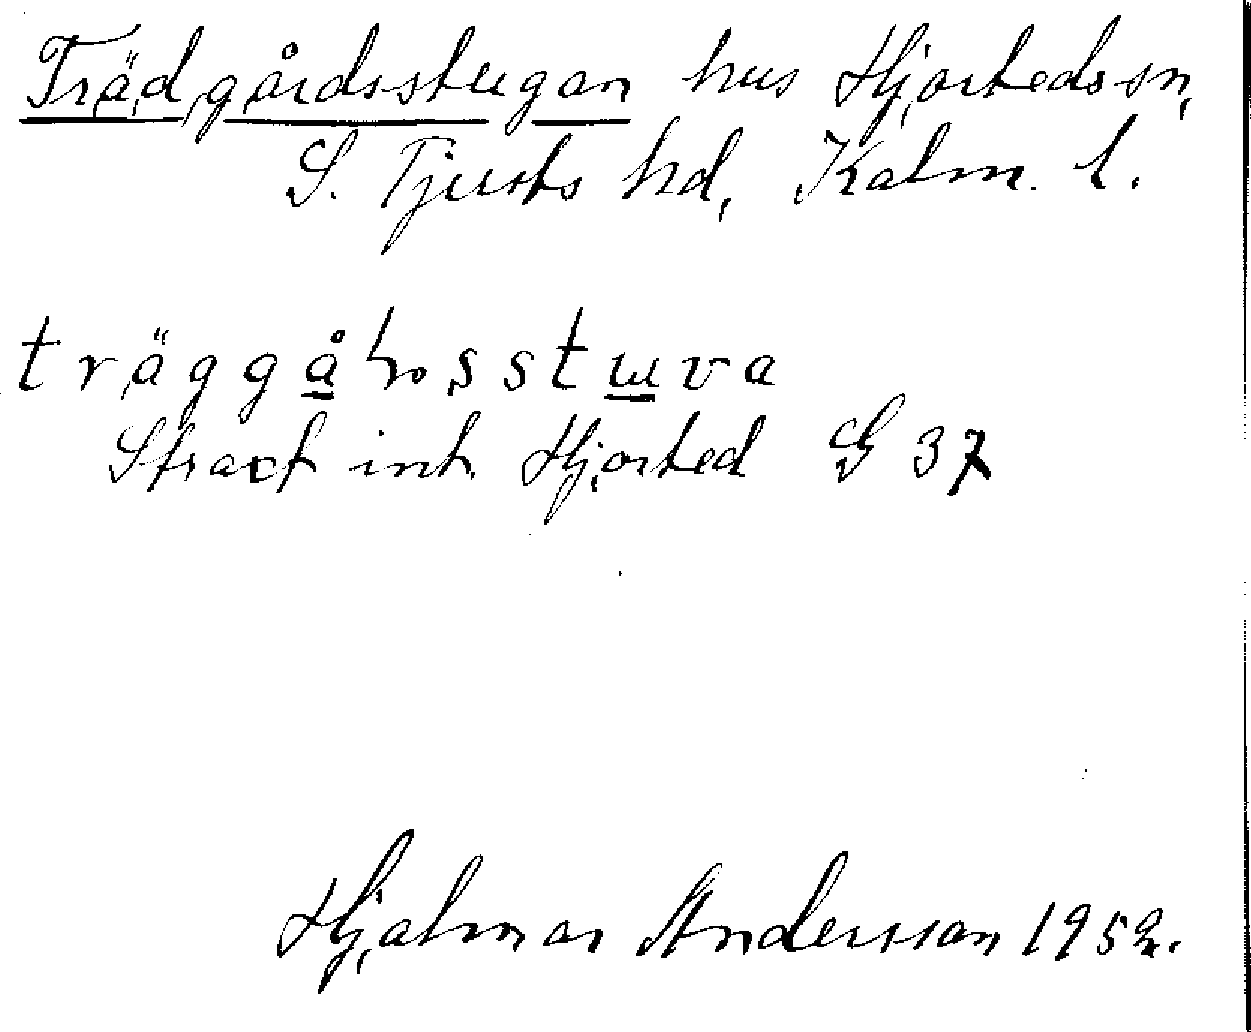 Trädgårdsstugan hus Hjorteds sn,
S. Tjusts hd, Kalm. l.
träggåhosstuva
Straxt int. Hjorted G 37
Hjalmar Andersson 1952.